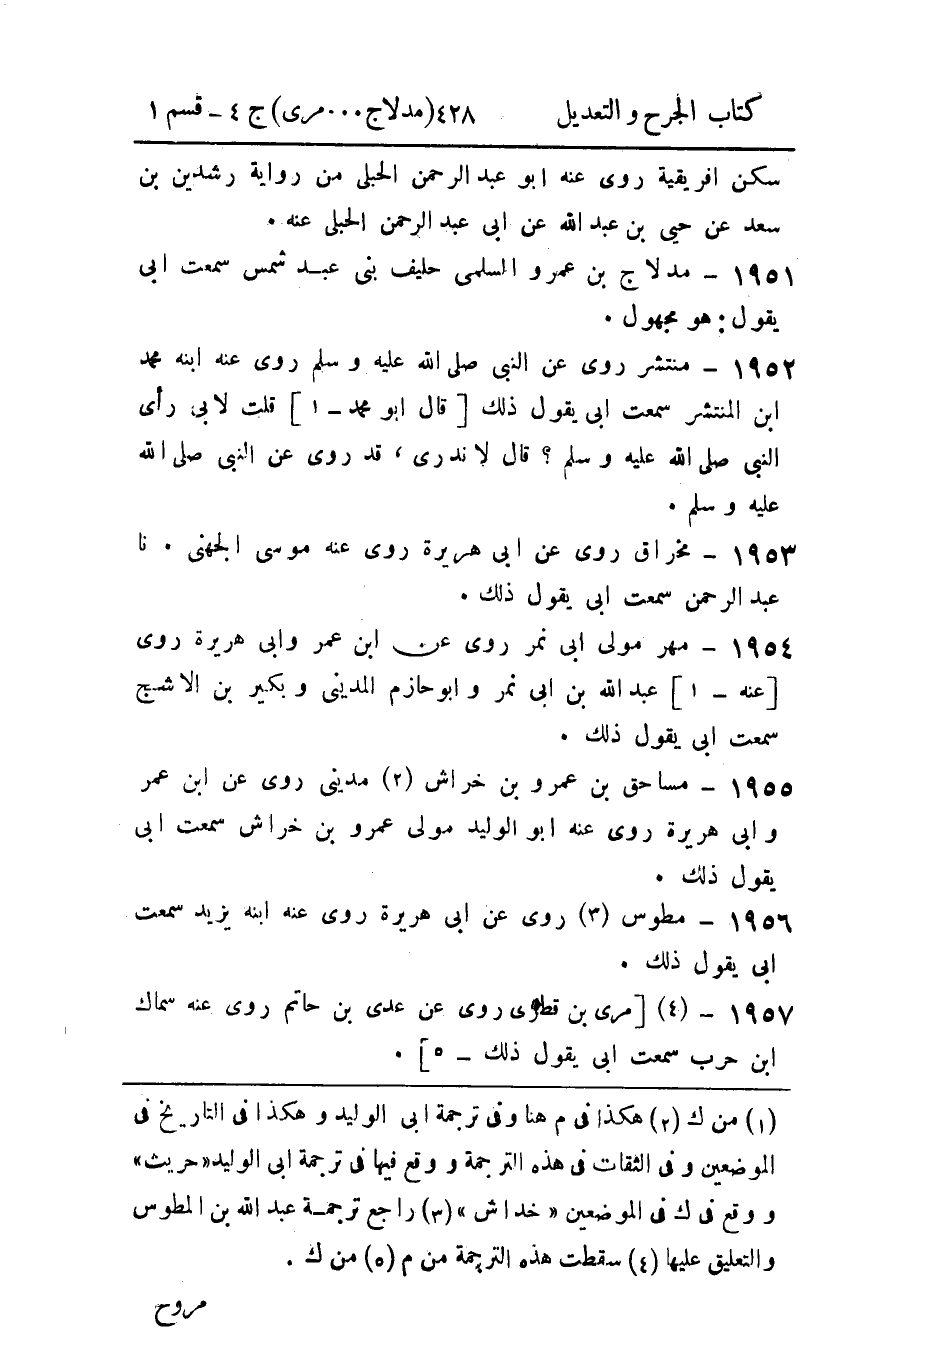 كتاب الجرح و التعديل ٤٢٨(مدلاج...مرى) ج ٤ - قسم ١
سكن افريقية روى عنه ابو عبد الرحمن الحبلى من رواية رشدين بن
سعد عن حيى بن عبد الله عن ابى عبد الرحمن الحبلى عنه .
١٩٥١ - مدلاج بن عمرو السلمى حليف بنى عبد شمس سمعت ابى
يقول: هو مجهول .
١٩٥٢ - منتشر روى عن النبى صلى الله عليه و سلم روى عنه ابنه محمد
ابن المنتشر سمعت ابى يقول ذلك [ قال ابو محمد - ١ ] قلت لابى رأى
النبى صلى الله عليه و سلم ؟ قال لا ندرى ، قد روى عن النبى صلى الله
عليه و سلم .
١٩٥٣ - مخراق روى عن ابى هريرة روى عنه موسى الجهنى . نا
عبد الرحمن سمعت ابى يقول ذلك .
١٩٥٤ - مهر مولى ابى نمر روى عن ابن عمر وابى هريرة روى
[عنه - ١ ] عبد الله بن ابى نمر و ابو حازم المدينى و بكير بن الاشج
سمعت ابى يقول ذلك .
١٩٥٥ - مساحق بن عمرو بن خراش (٢) مدينى روى عن ابن عمر
و ابى هريرة روى عنه ابو الوليد مولى عمرو بن خراش سمعت ابى
يقول ذلك .
١٩٥٦ - مطوس (٣) روى عن ابى هريرة روى عنه ابنه يزيد سمعت
ابى يقول ذلك .
١٩٥٧ - (٤) [مرى بن قطرى روى عن عدى بن حاتم روى عنه سماك
ابن حرب سمعت ابى يقول ذلك - ٥] .
(١) من ك (٢) هكذا فى م هنا وفى ترجمة ابى الوليد و هكذا فى التاريخ فى
الموضعين و فى الثقات فى هذه الترجمة و وقع فيها فى ترجمة ابى الوليد «حريث»
و وقع فى ك فى الموضعين « خداش » (٣) راجع ترجمة عبد الله بن المطوس
و التعليق عليها (٤) سقطت هذه الترجمة من م (٥) من ك .
مروح